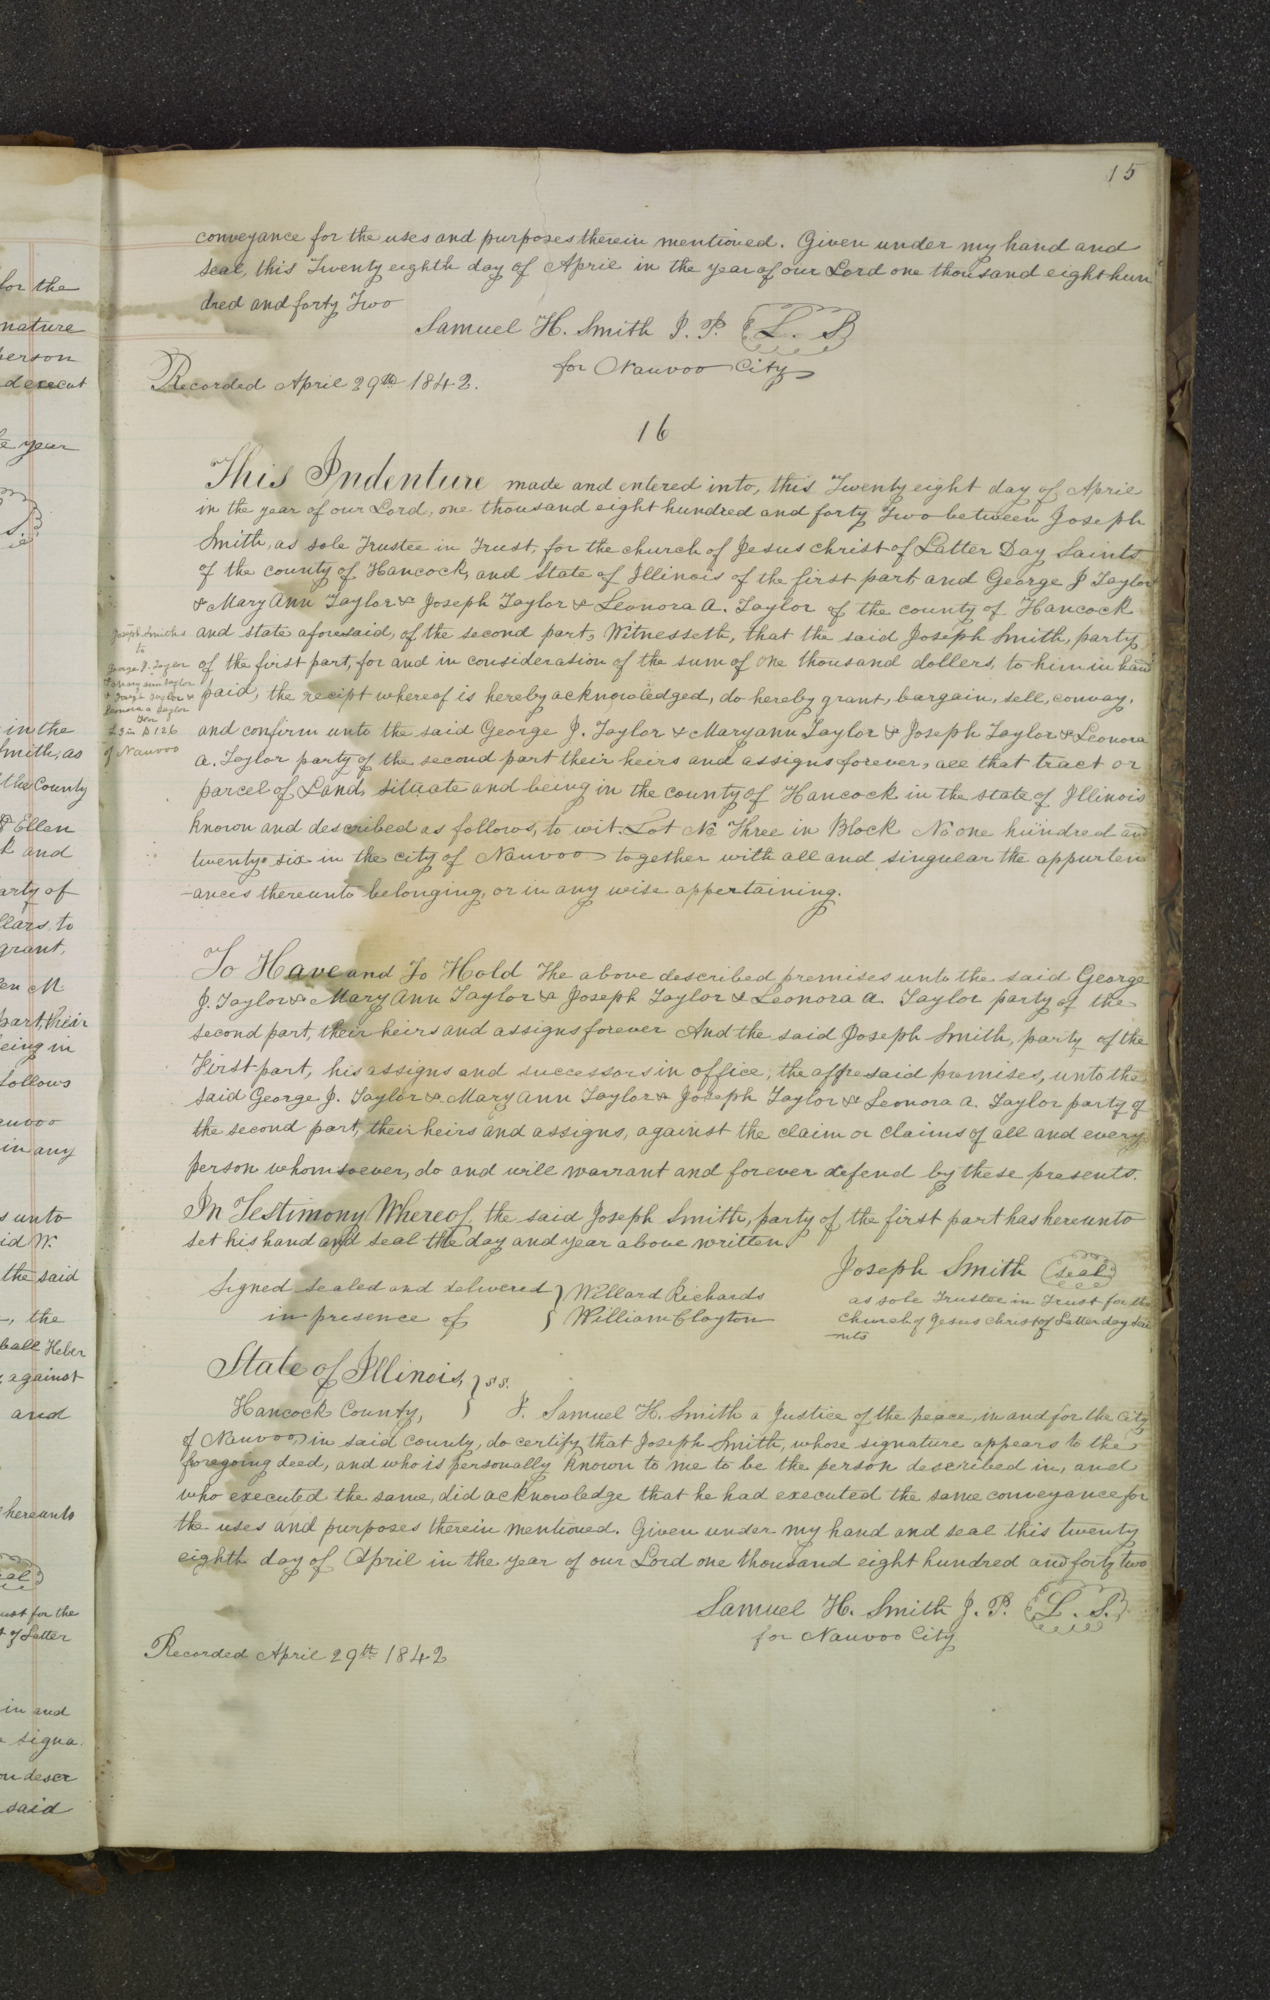 15
conveyance for the uses and purposes therein mentioned. Given under my hand and
seal, this Twenty eighth day of April in the year of our Lord one thousand eight hun
dred and forty Two
Samuel H. Smith J. P. L. S
for Nauvoo City
Recorded April 29th 1842.
16
This Indenture made and entered into, this Twenty eight day of April
in the year of our Lord, one thousand eight hundred and forty Two between Joseph
Smith, as sole Trustee in Trust, for the church of Jesus christ of Latter Day Saints
of the county of Hancock, and State of Illinois of the first part and George J Taylor
& Mary Ann Taylor & Joseph Taylor & Leonora A. Taylor of the county of Hancock
and state aforesaid, of the second part, Witnesseth, that the said Joseph Smith, party
of the first part, for and in consideration of the sum of one thousand dollers, to him in hand
paid, the recipt whereof is hereby acknowledged, do hereby grant, bargain, sell, convay,
and confirm unto the said George J. Taylor & Maryann Taylor & Joseph Taylor & Leonora
A. Taylor party of the second part their heirs and assigns forever, all that tract or
parcel of Land, situate and being in the county of Hancock in the state of Illinois
known and described as follows, to wit. Lot No Three in Block No one hundred and
twenty six in the city of Nauvoo together with all and singular the appurten
ances thereunto belonging, or in any wise appertaining.
Joseph Smith
to
George J. Taylor
& Mary ann Taylor
& Joseph Taylor &
Leonora a Taylor
L 3 in B 126
of Nauvoo
To Have and To Hold The above described premises unto the said George
J. Taylor & Mary Ann Taylor & Joseph Taylor & Leonora A Taylor party of the
second part, their heirs and assigns forever And the said Joseph Smith, party of the
First part, his assigns and successors in office, the afforesaid premises, unto the
said George J. Taylor & Mary Ann Taylor & Joseph Taylor & Leonora A. Taylor party of
the second part, their heirs and assigns, against the claim or claims of all and every
person whomsoever, do and will warrant and forever defend by these presents.
In Testimony Whereof, the said Joseph Smith, party of the first part has hereunto
set his hand and seal the day and year above written.
Joseph Smith seal
as sole Trustee in Trust for the
Church of Jesus christ of Latter day Sai
nts
Signed sealed and delivered } Willard Richards
in presence of } William Clayton
State of Illinois, } ss.
Hancock County, } I. Samuel H. Smith a Justice of the peace, in and for the City
of Nauvoo, in said county, do certify that Joseph Smith, whose signature appears to the
foregoing deed, and who is personally known to me to be the person described in, and
who executed the same, did acknowledge that he had executed the same conveyance for
the uses and purposes therein mentioned. Given under my hand and seal this twenty
eighth day of April in the year of our Lord one thousand eight hundred and forty two
Samuel H. Smith J. P. L. S.
for Nauvoo City
Recorded April 29th 1842
for the
nature
person
d execut
e year
S.
in the
Smith, as
the County
& Ellen
and
arty of
llars, to
grant,
en M
part, their
eing in
follows
auvoo
in any
s unto
id W.
the said
, the
ball Heber
, against
and
hereunto
eal
ust for the
t of Latter
in and
signa
on descr
said